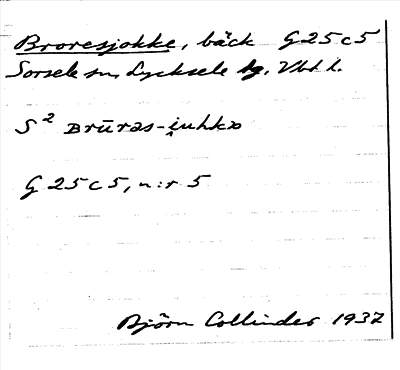 Broresjokke, bäck G25c5
Sorsele sn, Lycksele lg, Vbt l.
S² Brūrəs-i̯uhkə
G 25 c 5, n:r 5
Björn Collinder 1937